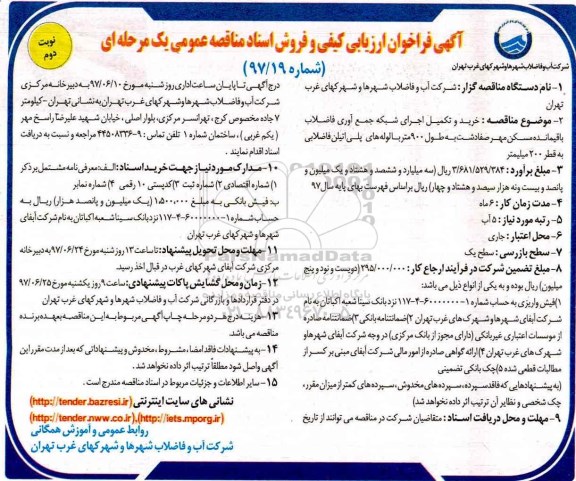 آگهی فراخوان ارزیابی کیفی و فروش اسناد مناقصه عمومی یک مرحله ای
(شماره ۹۷/۱۹)
نوبت دوم
شرکت آب و فاضلاب شهرها و شهرکهای غرب تهران
۱- نام دستگاه مناقصه گزار : شرکت آب و فاضلاب شهرها و شهرکهای غرب
تهران
۲- موضوع مناقصه : خرید و تکمیل اجرای شبکه جمع آوری فاضلاب
باقیمانده مسکن مهر صفادشت به طول ۹۰۰ متر با لوله های پلی اتیلن فاضلابی
به قطر ۲۰۰ میلیمتر
۳- مبلغ برآورد : ۳/۶۸۱/۵۳۹/۳۸۴ ریال (سه میلیارد و ششصد و هشتاد و یک میلیون و
پانصد و بیست ونه هزار سیصد و هشتاد و چهار) ریال براساس فهرست بهای پایه سال ۹۷
۴- مدت زمان کار : ۶ ماه
۵- رتبه مورد نیاز : ۵ آب
۶- محل اعتبار : جاری
۷- سطح بازرسی : سطح یک
۸- مبلغ تضمین شرکت در فرآیند ارجاع کار : ۲۹۵/۰۰۰/۰۰۰ (دویست و نود و پنج
میلیون) ریال بوده و به یکی از انواع ذیل می باشد:
۱)فیش واریزی به حساب شماره ۱-۶۰۰۰۰۰۰-۴-۱۱۷ نزد بانک سینا شعبه اکباتان به نام
شرکت آبفای شهرها و شهرک های غرب تهران ۲)ضمانتنامه بانکی ۳)ضمانتنامه صادره
از موسسات اعتباری غیربانکی (دارای مجوز از بانک مرکزی) در وجه شرکت آبفای شهرها و
شهرک های غرب تهران ۴)ارائه گواهی صادره از امور مالی شرکت آبفای مبنی بر کسر از
مطالبات قطعی شده ۵)چک بانکی تضمینی
(به پیشنهادهایی که فاقد سپرده، سپرده های مخدوش، سپرده های کمتر از میزان مقرر،
چک شخصی و نظایر آن ترتیب اثر داده نخواهد شد)
۹- مهلت و محل دریافت اسناد : متقاضیان شرکت در مناقصه می توانند از تاریخ
درج آگهی تا پایان ساعت اداری روز شنبه مورخ ۹۷/۰۶/۱۰ به دبیرخانه مرکزی
شرکت آب و فاضلاب شهرها و شهرکهای غرب تهران به نشانی تهران - کیلومتر
۷ جاده مخصوص کرج، تهرانسر مرکزی، بلوار اصلی، خیابان شهید علیرضا راسخ مهر
( یکم غربی ) ، ساختمان شماره ۱ تلفن تماس : ۹-۴۴۵۰۸۳۳۶ مراجعه و نسبت به دریافت
اسناد اقدام نمایند .
۱۰- مدارک مورد نیاز جهت خرید اسناد : الف: معرفی نامه مشتمل بر ذکر
۱) شماره اقتصادی ۲) شماره ثبت ۳) کدپستی ۱۰ رقمی ۴) شماره نمابر
ب: فیش بانکی به مبلغ ۱.۵۰۰.۰۰۰ ریال (یک میلیون و پانصد هزار) ریال به
حساب شماره ۱-۶۰۰۰۰۰۰-۴-۱۱۷ نزد بانک سینا شعبه اکباتان به نام شرکت آبفای
شهرها و شهرکهای غرب تهران
۱۱- مهلت و محل تحویل پیشنهاد: تا ساعت ۱۳ روز شنبه مورخ ۹۷/۰۶/۲۴ به دبیر خانه
مرکزی شرکت آبفای شهر کهای غرب در قبال اخذ رسید.
۱۲- زمان و محل گشایش پاکات پیشنهادی: ساعت ۹ روز یکشنبه مورخ ۹۷/۰۶/۲۵
در دفتر قراردادها و بازرگانی شرکت آب و فاضلاب شهرها و شهرکهای غرب تهران
۱۳- هزینه درج هر دو مرحله چاپ آگهی مربوط به این مناقصه به عهده برنده
مناقصه می باشد.
۱۴- به پیشنهادات فاقد امضاء، مشروط، مخدوش و پیشنهاداتی که بعد از مدت مقرر این
آگهی واصل شود مطلقاً ترتیب اثر داده نخواهد شد.
۱۵- سایر اطلاعات و جزئیات مربوط در اسناد مناقصه مندرج است .
نشانی های سایت اینترنتی (http://tender.bazresi.ir)
(http://tender.nww.co.ir),(http://iets.mporg.ir)
روابط عمومی و آموزش همگانی
شرکت آب و فاضلاب شهرها و شهرکهای غرب تهران
ParsNamadData